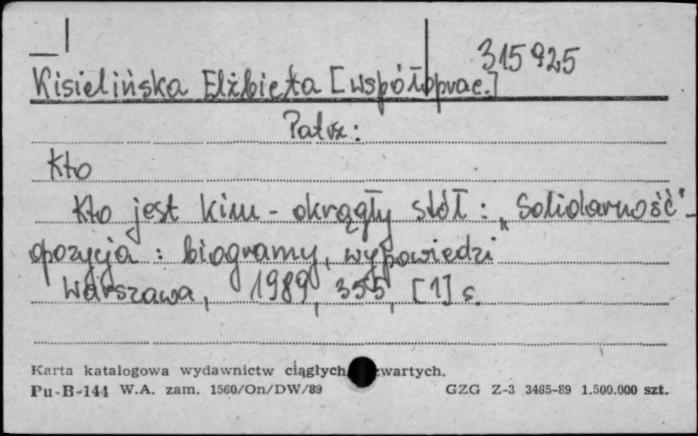 315925
Kisielińska Elżbieta [współprac.]
Patrz:
Kto
Kto jest kim - okrągły stół : „Solidarność" -
opozycja : biogramy, wypowiedzi
Warszawa, 1989, 355, [1] s.
Karta katalogowa wydawnictw ciągłych zwartych.
Pu-B-144 W.A. zam. 1560/On/DW/89 GZG Z-3 3465-89 1.500.000 szt.